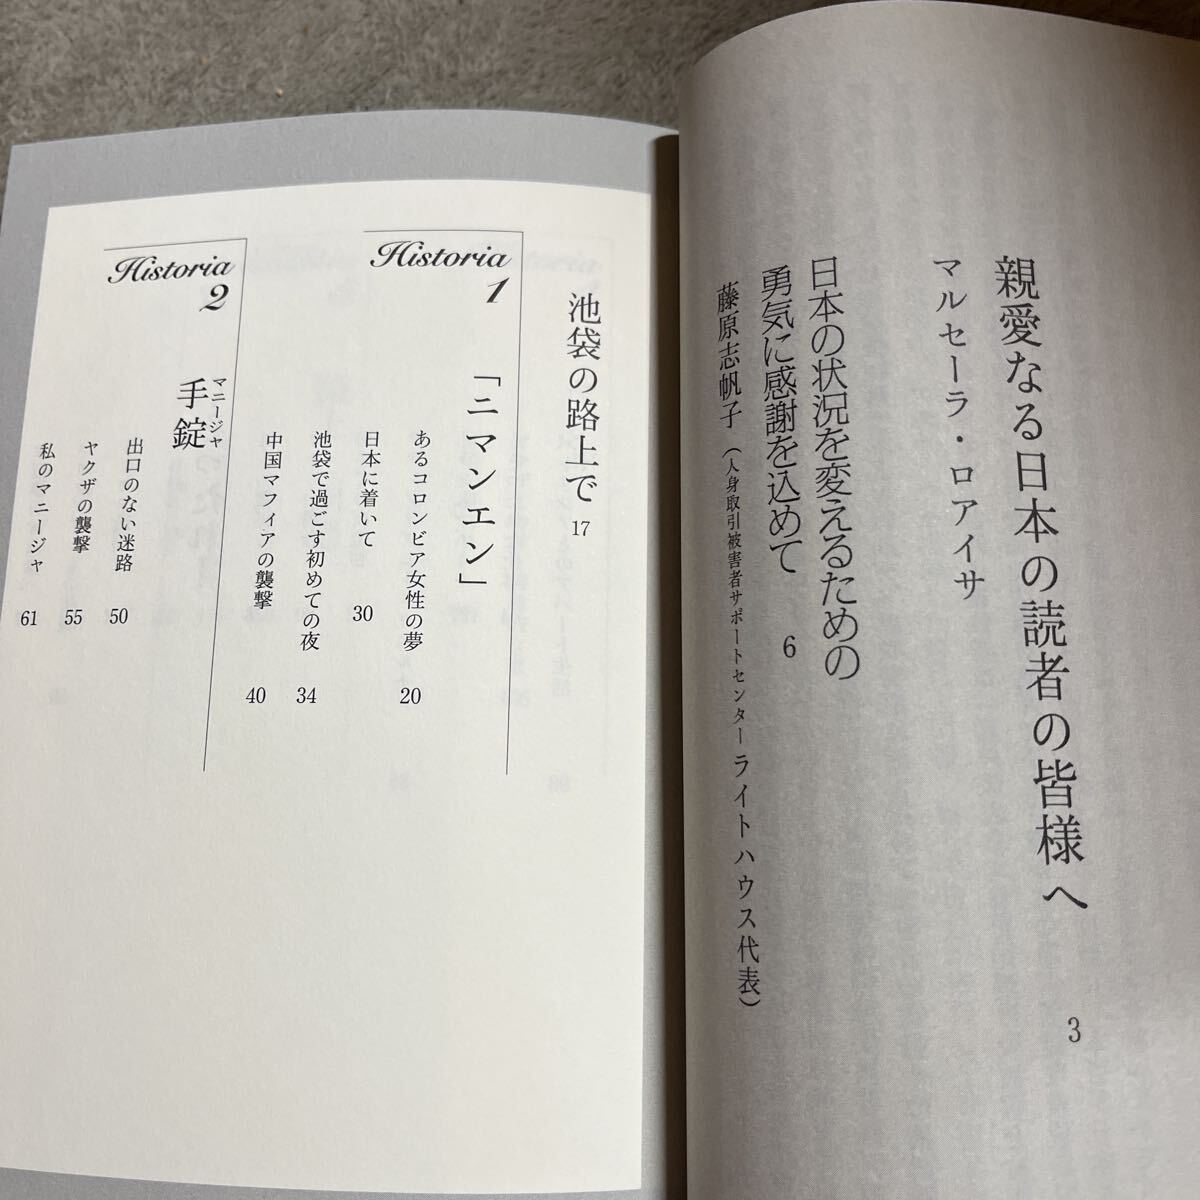 親愛なる日本の読者の皆様へ 3
マルセーラ・ロアイサ
日本の状況を変えるための
勇気に感謝を込めて 6
藤原志帆子（人身取引被害者サポートセンターライトハウス代表）
池袋の路上で 17
Historia 1
「ニマンエン」
あるコロンビア女性の夢 20
日本に着いて 30
池袋で過ごす初めての夜 34
中国マフィアの襲撃 40
Historia 2
手錠
マニージャ
出口のない迷路 50
ヤクザの襲撃 55
私のマニージャ 61